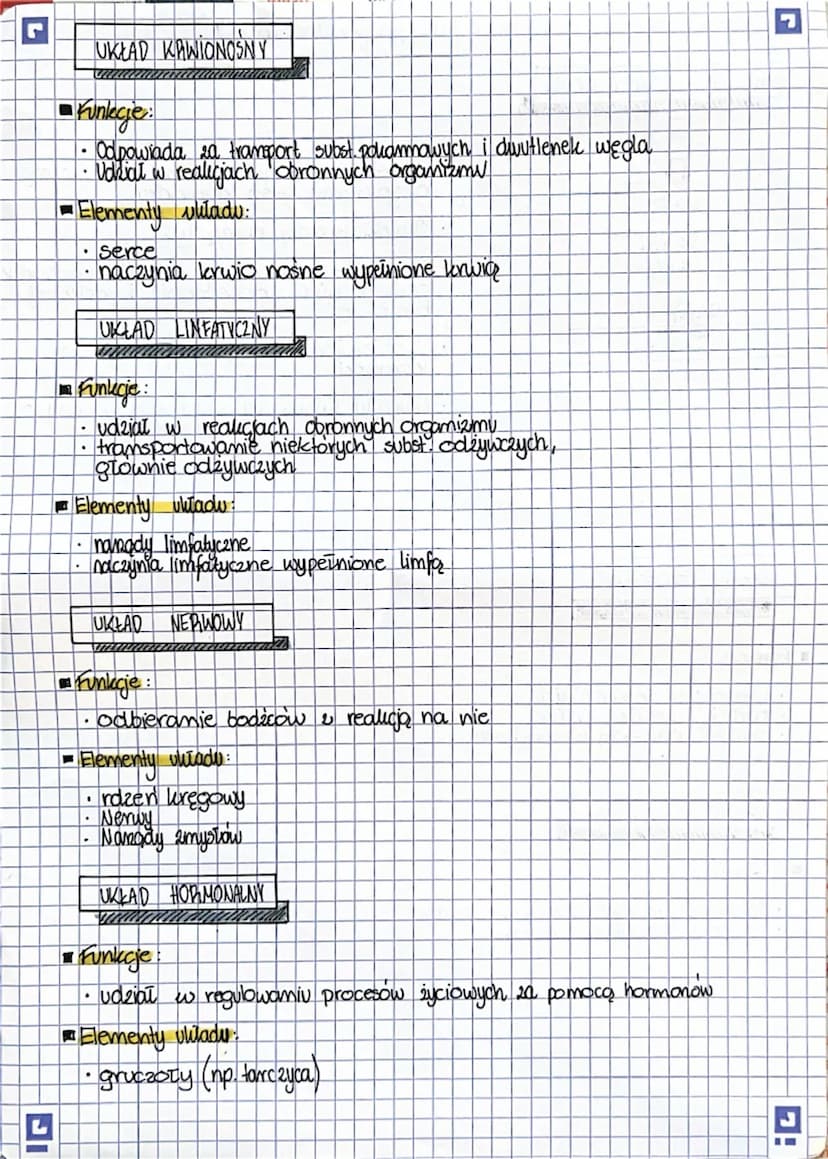 UKŁAD KRWIONOŚNY
Funkcje:
· Odpowiada za transport subst. pokarmowych i dwutlenek węgla
· Udział w reakcjach obronnych organizmu
Elementy układu:
· serce
· naczynia krwio nośne wypełnione krwią
UKŁAD LINFATYCZNY
Funkcje:
· udział w reakcjach obronnych organizmu
· transportowanie niektórych subst. odżywczych,
głównie odżywczych
Elementy układu:
· narządy limfatyczne
· naczynia limfatyczne wypełnione limfą
UKŁAD NERWOWY
Funkcje:
· odbieranie bodźców i reakcją na nie
Elementy układu:
· rdzeń kręgowy
· Nerwy
· Narządy zmysłów
UKŁAD HORMONALNY
Funkcje:
· udział w regulowaniu procesów życiowych za pomocą hormonów
Elementy układu:
· gruczoły (np. tarczyca)